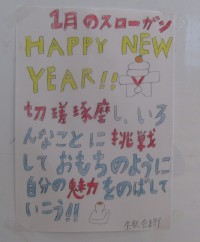 1月のスローガン
HAPPY NEW
YEAR!!
切磋琢磨し、いろ
んなことに挑戦
しておもちのように
自分の魅力をのばして
いこう!!